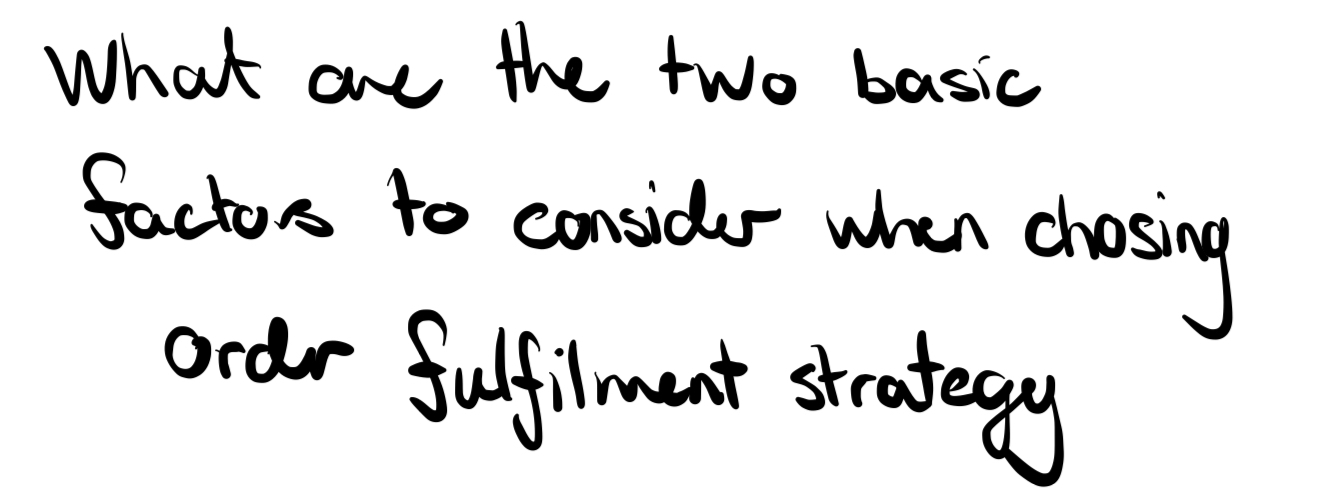 What are the two basic
factors to consider when chosing
order fulfilment strategy